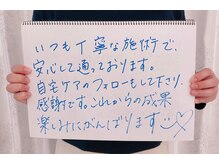 いつも丁寧な施術で、
安心して通っております。
自宅ケアのフォローもして下さり、
感謝です。これからの成果
楽しみにがんばります